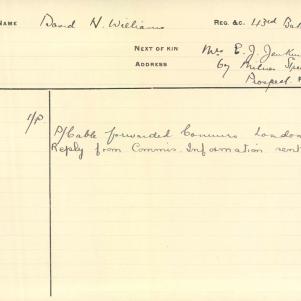 NAME David N. Williams REG. &C. 43rd Bat
NEXT OF KIN Mrs E. J. Jenkin
ADDRESS c/o Milner
Prospect
P/Cable forwarded Commrs London
Reply from Commis. Information sent